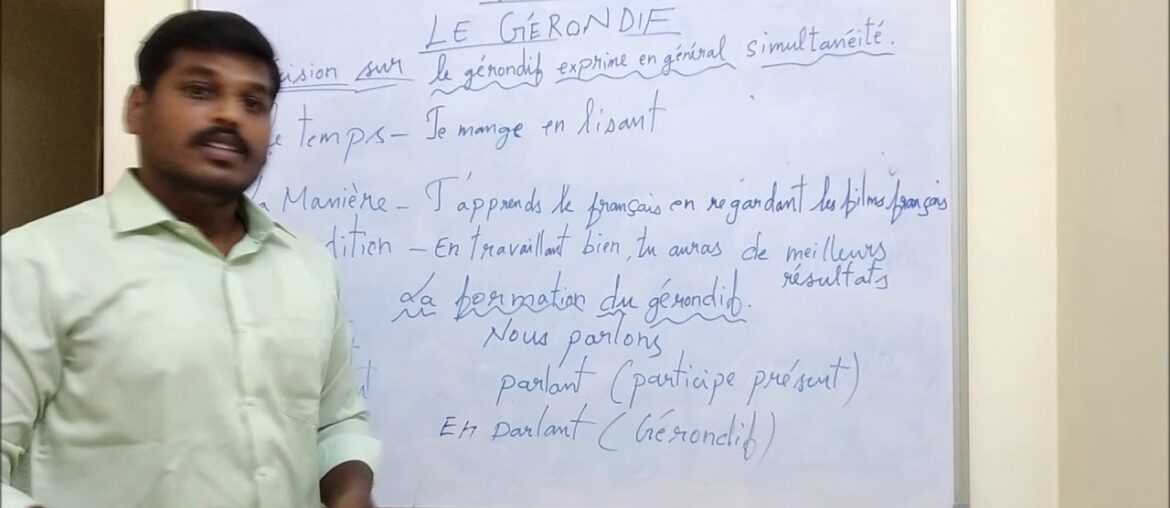 LE GÉRONDIF
sur le gérondif exprime en général simultanéité.
temps - Je mange en lisant
Manière - J'apprends le français en regardant les films français
dition - En travaillant bien, tu auras de meilleurs
résultats
La formation du gérondif.
Nous parlons
parlant (participe présent)
En parlant (Gérondif)